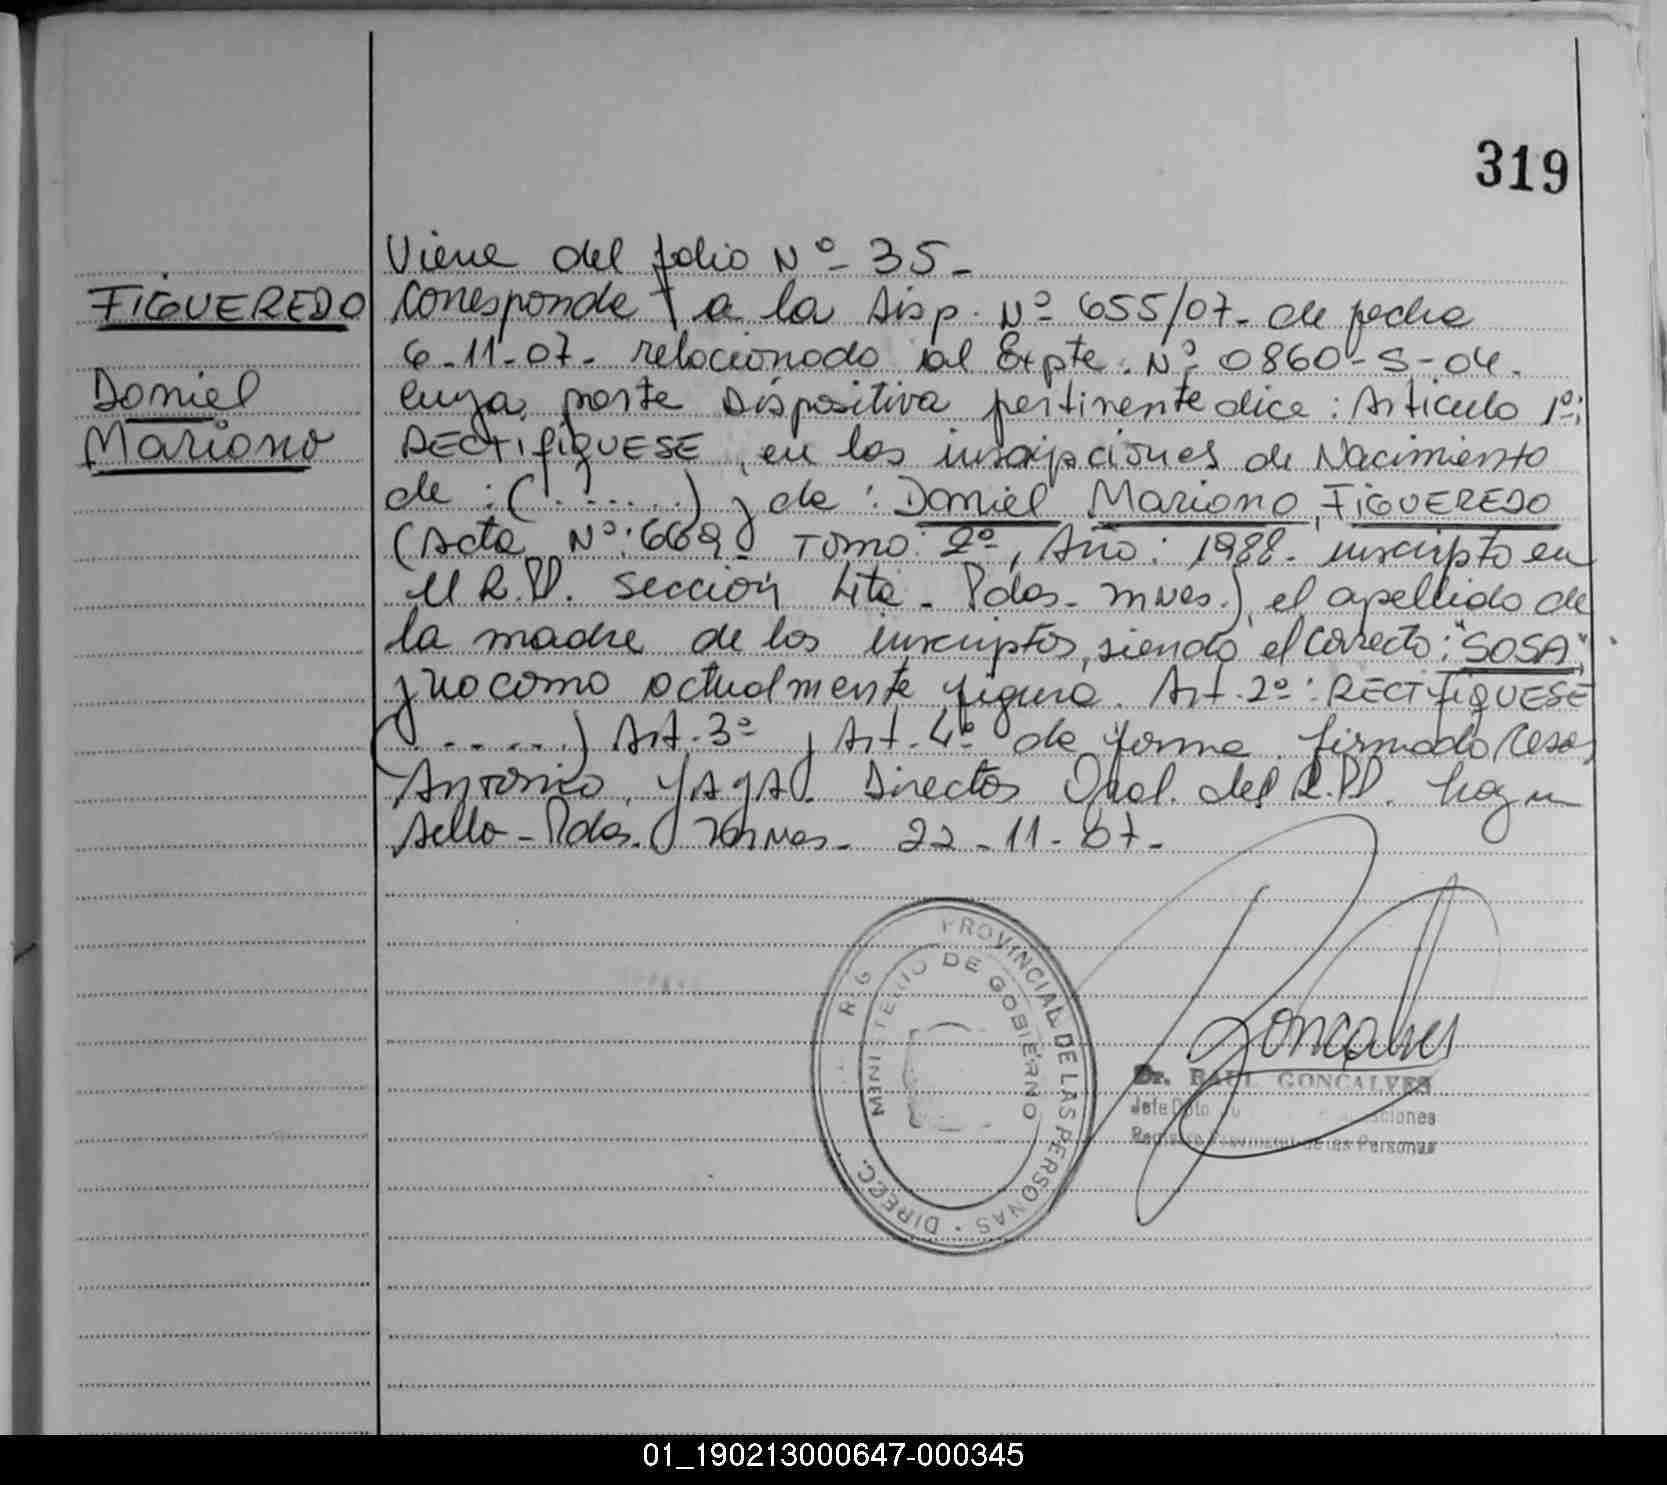 319
Viene del folio Nº 35-
FIGUEREDO
Daniel
Mariano
Corresponde a la Disp. Nº 655/07- de fecha
6-11-07- relacionado al Expte. Nº 0860-S-04.
cuya parte Dispositiva pertinente dice: Articulo 1º:
RECTIFIQUESE, en las inscripciones de Nacimiento
de: (.......) y de: Daniel Mariano, FIGUEREDO
(Acta Nº: 669- Tomo: 2º, Año: 1988- inscripto en
el R.PP. Sección 4ta- Pdas- mnes.), el apellido de
la madre de los inscriptos, siendo el correcto: "SOSA",
y no como actualmente figura. Art. 2º: RECTIFIQUESE
(.....) Art. 3º y Art. 4º de forma firmado Cesar
Antonio Director Gral. del R.PP. hay un
sello- Pdas. Mnes- 22-11-07-
DIRECC. REG PROVINCIAL DE LAS PERSONAS
MINISTERIO DE GOBIERNO
Goncalves
Dr. RAUL GONCALVES
Jefe Dpto
Registro Provincial de las Personas
01_190213000647-000345